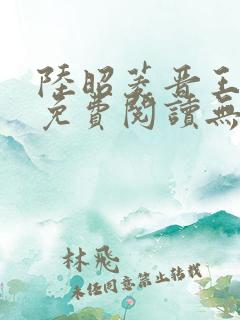 陸昭菱晋王
免費閱讀無
林飛
未任同意禁止转载